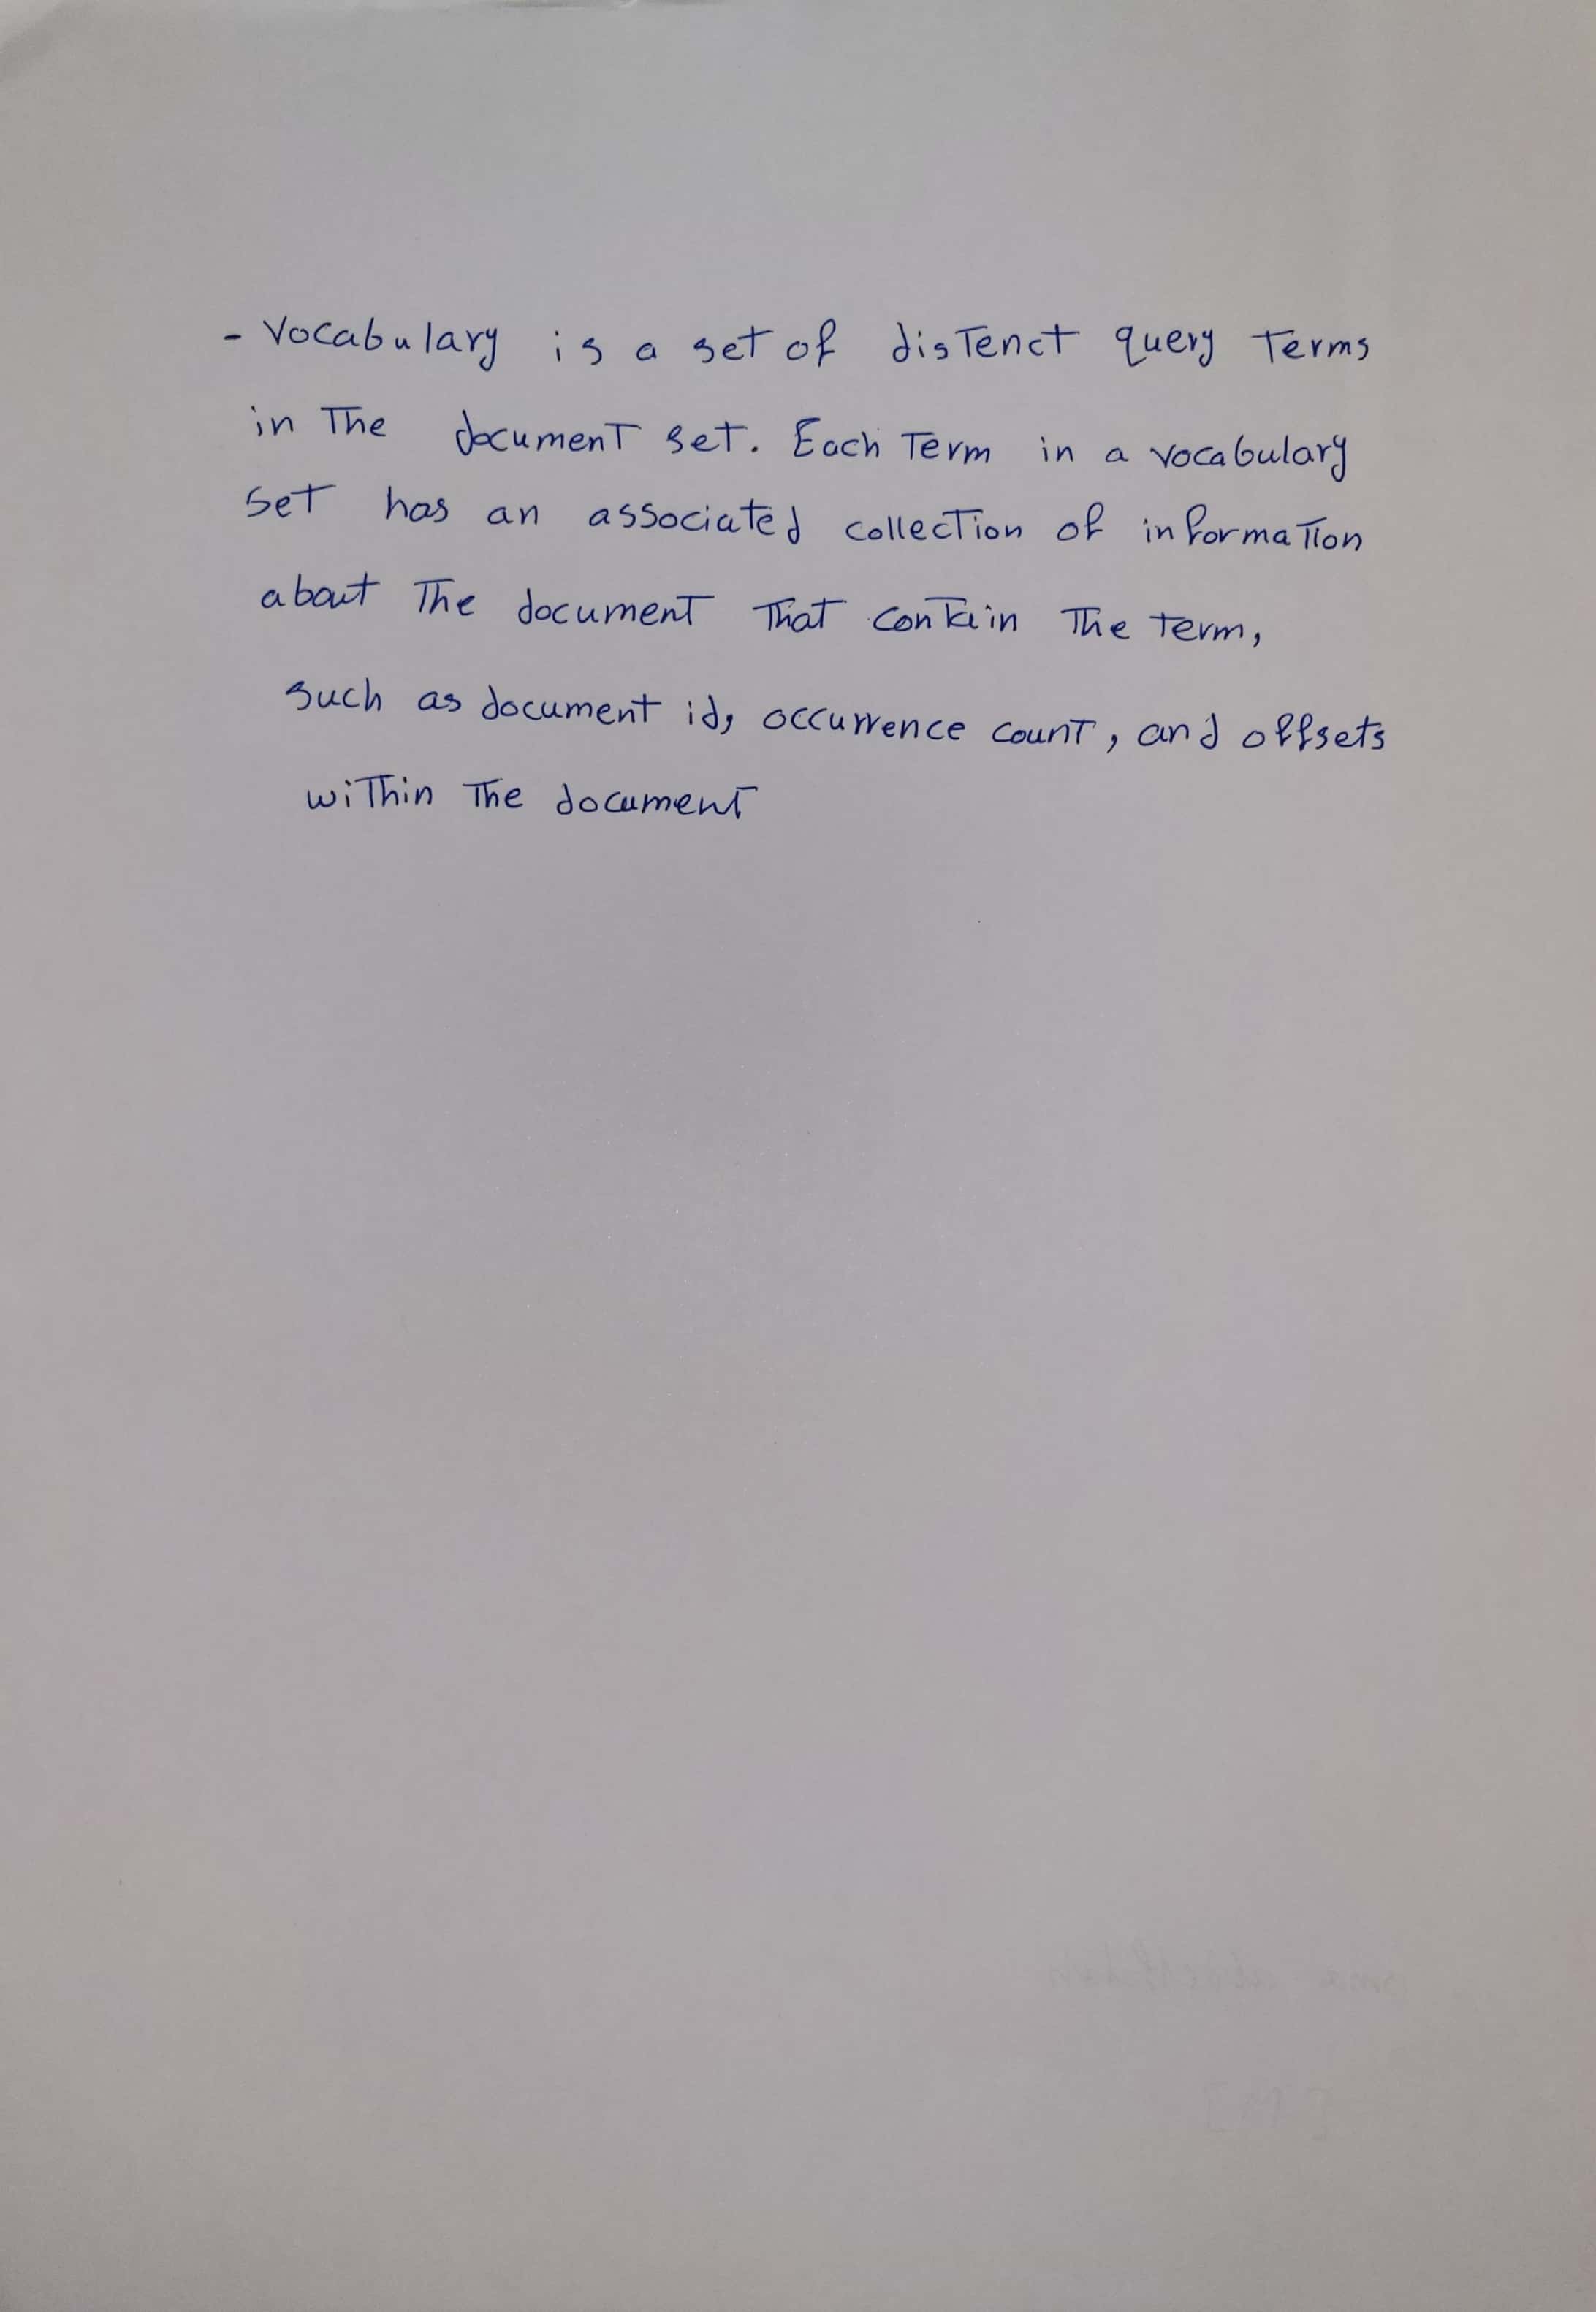 - Vocabulary is a set of distenct query terms
in The document set. Each Term in a vocabulary
set has an associated collection of information
about The document That contain The term,
such as document id, occurrence count, and offsets
within The document